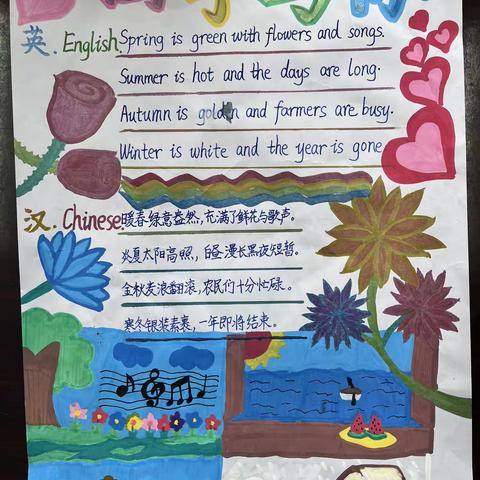 英. English.
Spring is green with flowers and songs.
Summer is hot and the days are long.
Autumn is golden and farmers are busy.
Winter is white and the year is gone
汉. Chinese.
暖春绿意盎然,充满了鲜花与歌声。
炎夏太阳高照,白昼漫长黑夜短暂。
金秋麦浪翻滚,农民们十分忙碌。
寒冬银装素裹,一年即将结束。